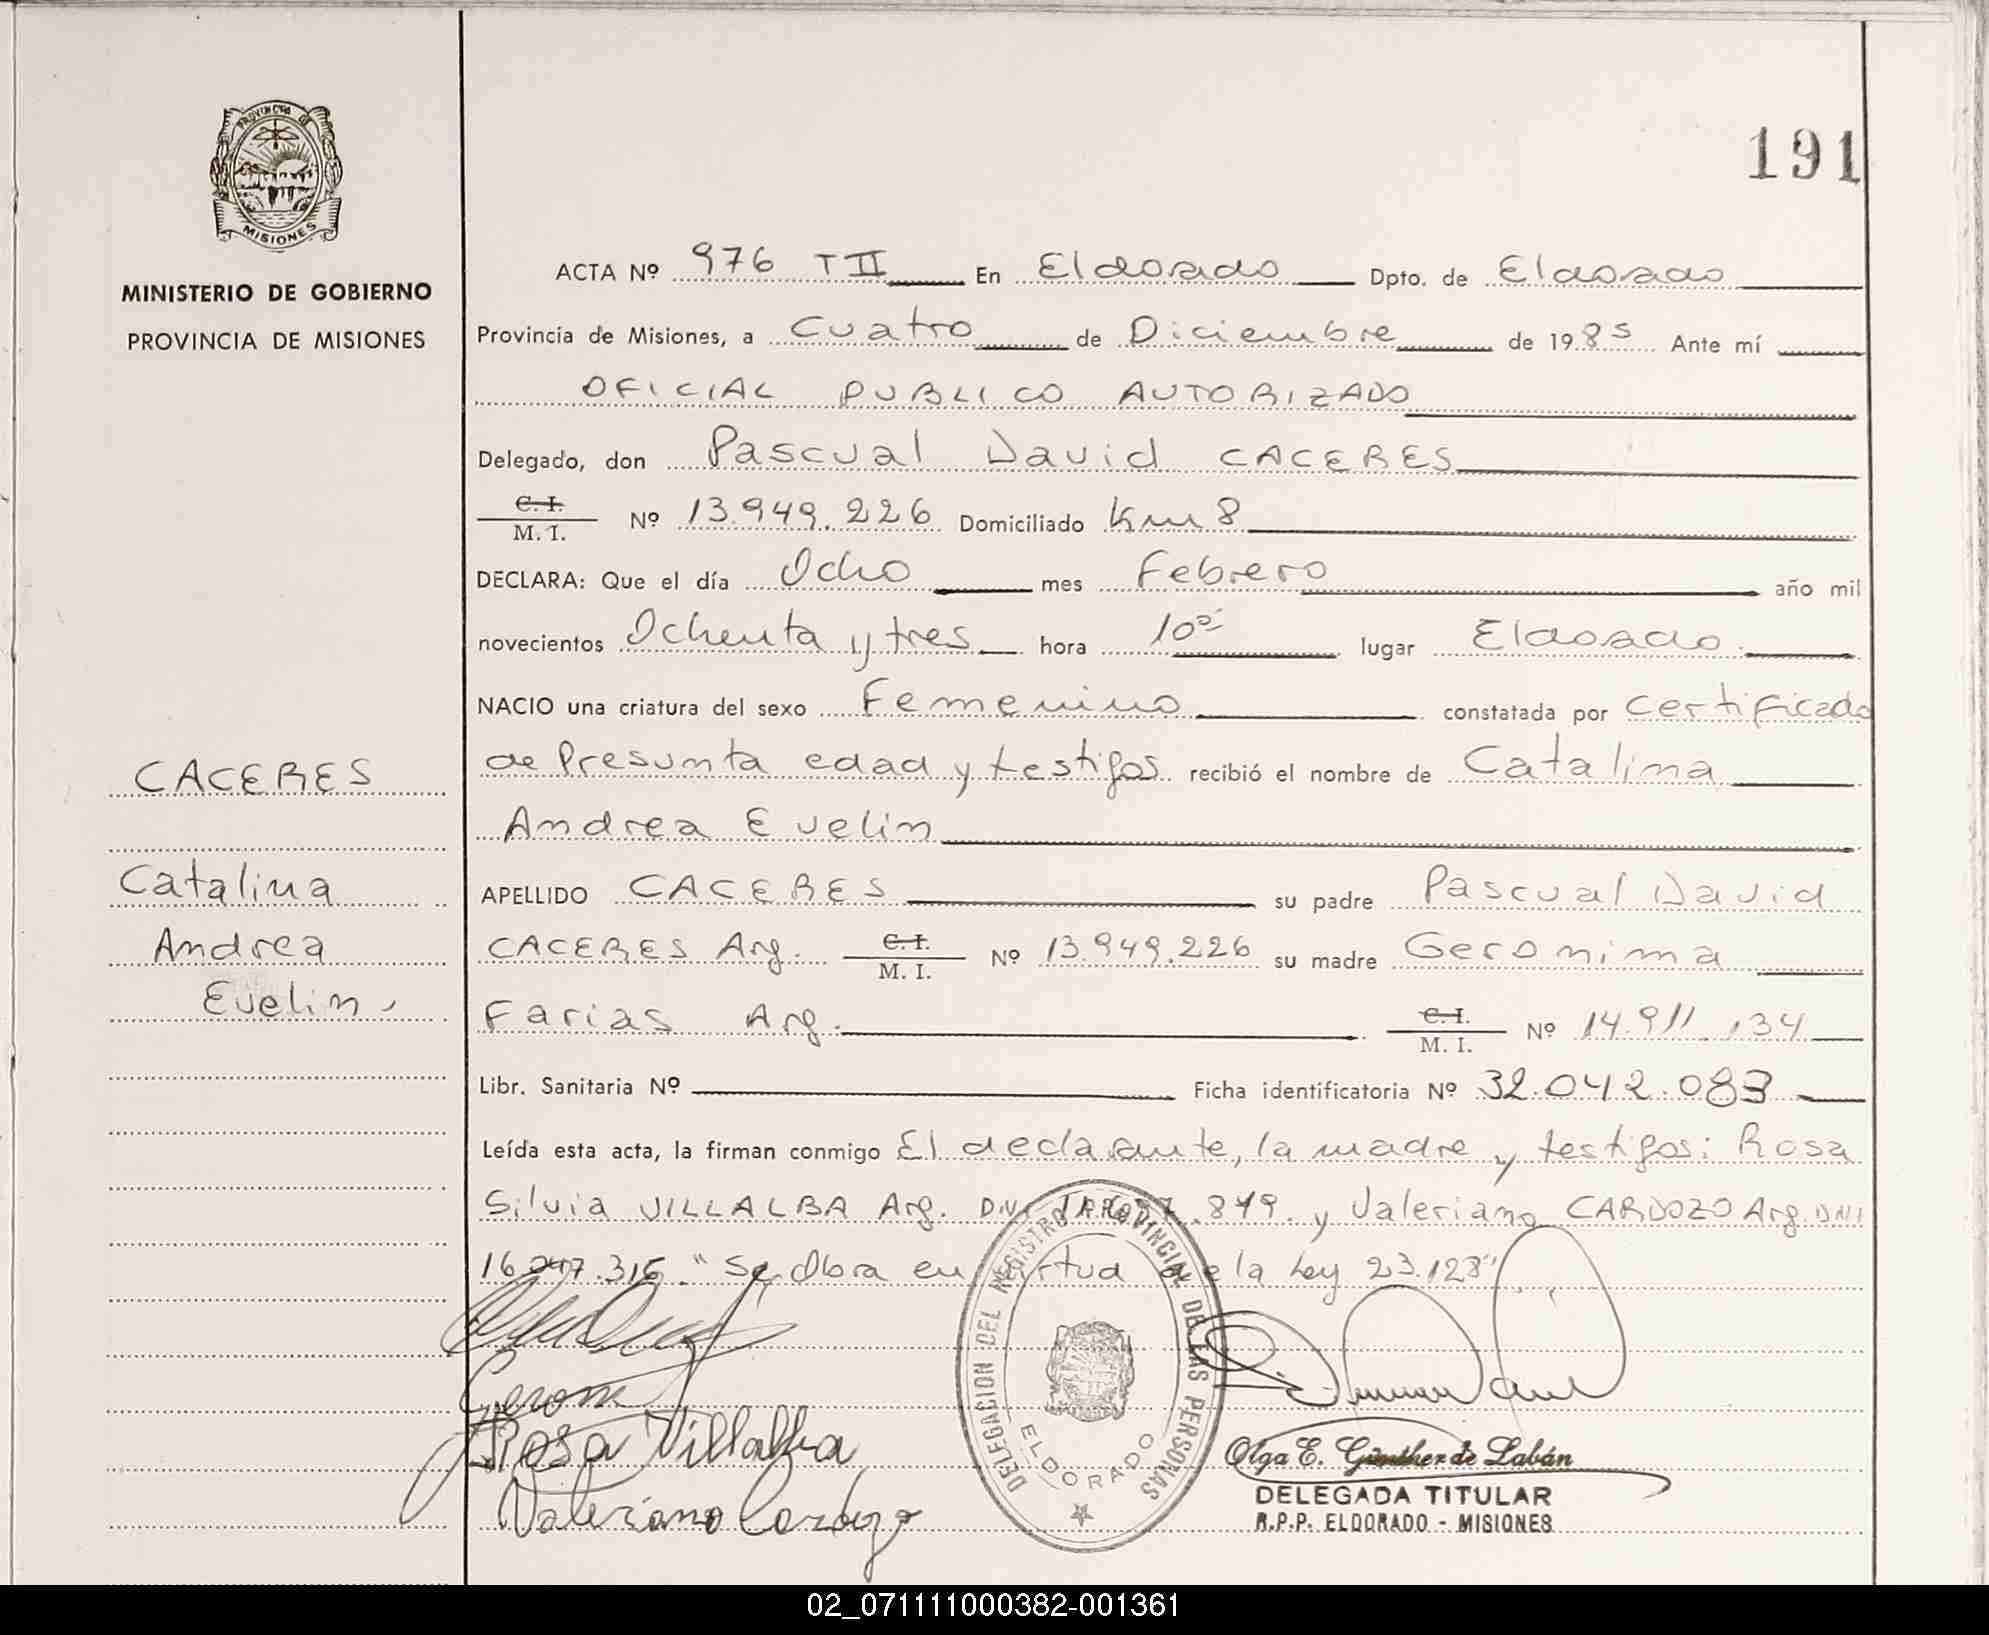 191
PROVINCIA DE
MISIONES
MINISTERIO DE GOBIERNO
PROVINCIA DE MISIONES
CACERES
Catalina
Andrea
Evelin
ACTA Nº 976 T II En Eldorado Dpto. de Eldorado
Provincia de Misiones, a Cuatro de Diciembre de 1985 Ante mí
OFICIAL PUBLICO AUTORIZADO
Delegado, don Pascual David CACERES
C. I.
M. I. Nº 13.949.226 Domiciliado Km 8
DECLARA: Que el día Ocho mes Febrero año mil
novecientos Ochenta y tres hora 10 lugar Eldorado
NACIO una criatura del sexo Femenino constatada por certificado
de Presunta edad y testigos recibió el nombre de Catalina
Andrea Evelin
APELLIDO CACERES su padre Pascual David
CACERES Arg. C. I. M. I. Nº 13.949.226 su madre Geronima
Farias Arg. C. I. M. I. Nº 14.911.134
Libr. Sanitaria Nº Ficha identificatoria Nº 32.042.083
Leída esta acta, la firman conmigo El declarante, la madre y testigos: Rosa
Silvia VILLALBA Arg. DNI y Valeriano CARDOZO Arg. DNI
16.247.316. "Se Obra en virtud de la Ley 23.128"
Rosa Villalba
Valeriano Cardozo
DELEGACION DEL REGISTRO PROVINCIAL DE LAS PERSONAS
ELDORADO
Olga E. Günther de Labán
DELEGADA TITULAR
R.P.P. ELDORADO - MISIONES
02_071111000382-001361